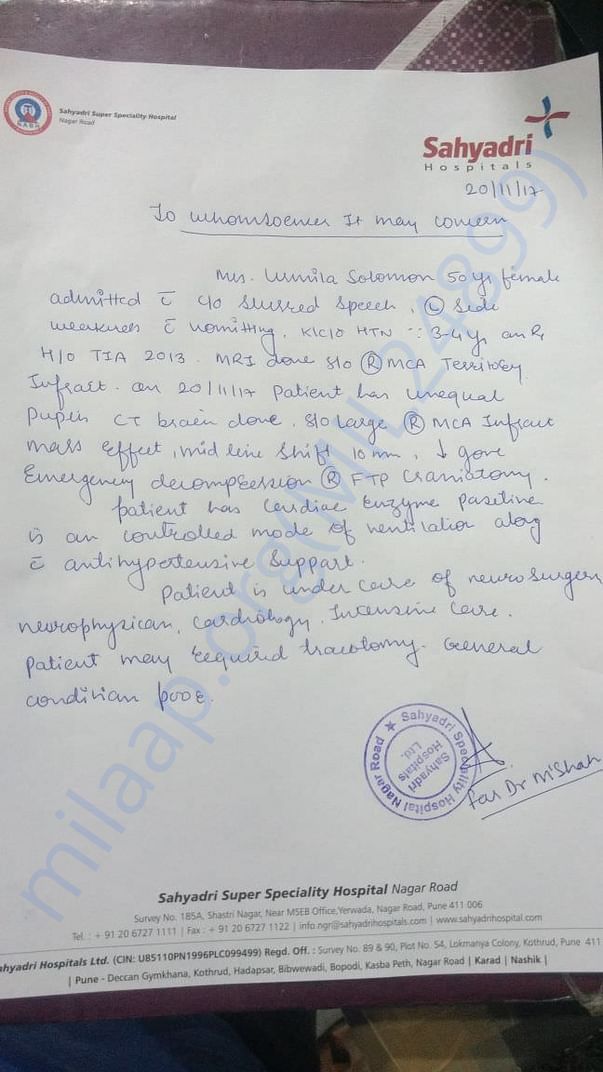 Sahyadri Super Speciality Hospital
Nagar Road
Sahyadri
Hospitals
20/11/17
To whomsoever It may concern
Mrs. Solomon 50 yr female
admitted c̄ c/o slurred speech, Ⓛ side
weakness c̄ vomitting. K/c/o HTN 3-4 yr on Rx
H/o TIA 2013. MRI done s/o Ⓡ MCA Territory
Infract. on 20/11/17 Patient has unequal
pupils CT brain done. s/o large Ⓡ MCA Infract
mass effect, mid line shift 10 mm, ↓
Emergency decompression Ⓡ FTP Craniatomy.
patient has Cardiac Enzyme Positive
is on controlled mode of ventilation along
c̄ antihypertensive support.
Patient is under care of neurosurgery
neurophysican, Cardiology, Intensive Care.
Patient may required tracotomy. General
condition poor.
Sahyadri Speciality Hospital Nagar Road
Sahyadri Hospitals Ltd.
for Dr M Shah
milaap.org(MIL24899)
Sahyadri Super Speciality Hospital Nagar Road
Survey No. 185A, Shastri Nagar, Near MSEB Office, Yerwada, Nagar Road, Pune 411 006
Tel. : + 91 20 6727 1111 | Fax : + 91 20 6727 1122 | info.ngr@sahyadrihospitals.com | www.sahyadrihospital.com
ahyadri Hospitals Ltd. (CIN: U85110PN1996PLC099499) Regd. Off. : Survey No. 89 & 90, Plot No. 54, Lokmanya Colony, Kothrud, Pune 411
| Pune - Deccan Gymkhana, Kothrud, Hadapsar, Bibwewadi, Bopodi, Kasba Peth, Nagar Road | Karad | Nashik |